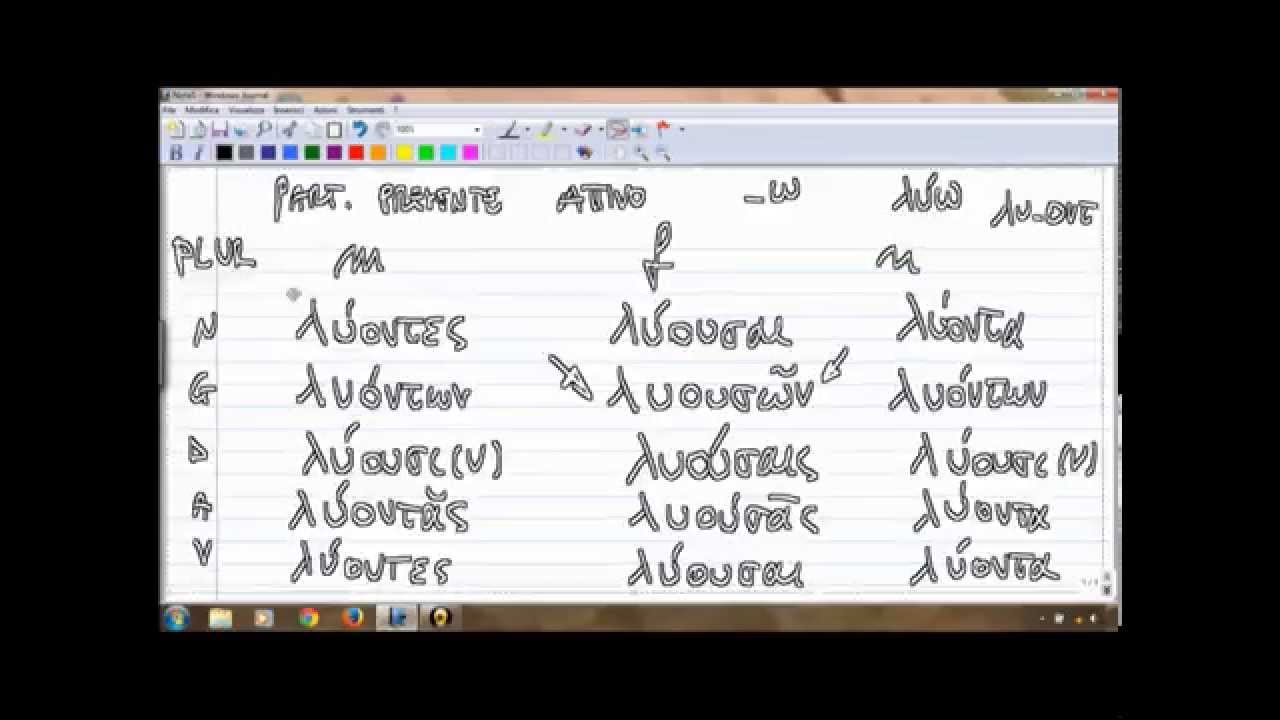 Note1 - Windows Journal
File Modifica Visualizza Inserisci Azioni Strumenti ?
100%
B I
PART. PRESENTE ATTIVO -ω λύω λυ-οντ
PLUR m f n
N λύοντες λύουσαι λύοντα
G λυόντων λυουσῶν λυόντων
D λύουσι(ν) λυούσαις λύουσι(ν)
A λύοντᾰς λυούσᾱς λύοντα
V λύοντες λύουσαι λύοντα
1/1